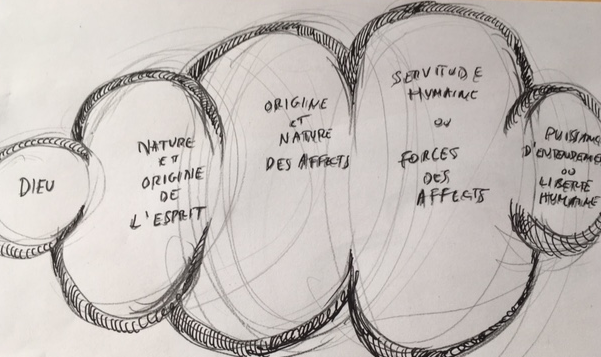 DIEU
NATURE
ET
ORIGINE
DE
L'ESPRIT
ORIGINE
ET
NATURE
DES AFFECTS
SERVITUDE
HUMAINE
OU
FORCES
DES
AFFECTS
PUISSANCE
D'ENTENDEMENT
OU
LIBERTÉ
HUMAINE